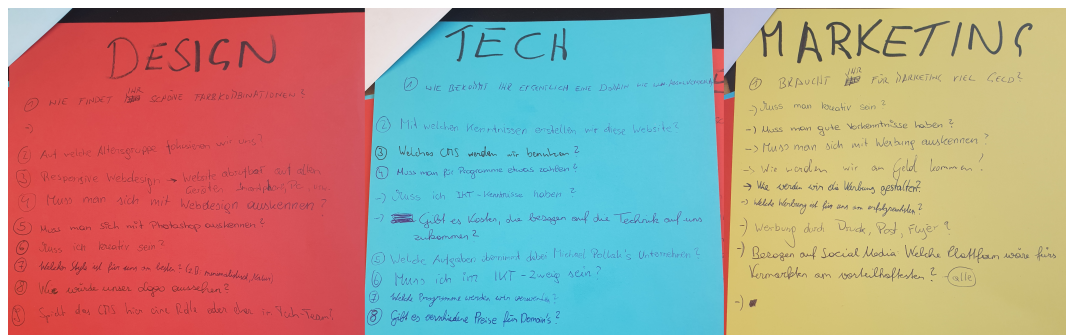 DESIGN
① WIE FINDET IHR SCHÖNE FARBKOMBINATIONEN?
->
② Auf welche Altersgruppe fokussieren wir uns?
③ Responsive Webdesign -> Website abrufbar auf allen
Geräten Smartphone, PC,
④ Muss man sich mit Webdesign auskennen?
⑤ Muss man sich mit Photoshop auskennen?
⑥ Muss ich kreativ sein?
⑦ Welcher Style ist für uns am besten? (z.B. minimalistisch,
⑧ Wie würde unser Logo aussehen?
⑨ Spielt das CMS hier eine Rolle oder eher im Tech-Team?
TECH
① WIE BEKOMMT IHR EIGENTLICH EINE DOMAIN
② Mit welchen Kenntnissen erstellen wir diese Website?
③ Welches CMS werden wir benutzen?
④ Muss man für Programme etwas zahlen?
-> Muss ich IKT-Kenntnisse haben?
-> Gibt es Kosten, die bezogen auf die Technik auf uns
zukommen?
⑤ Welche Aufgaben übernimmt dabei Michael Unternehmen?
⑥ Muss ich im IKT-Zweig sein?
⑦ Welche Programme werden wir verwenden?
⑧ Gibt es verschiedene Preise für Domain's?
MARKETING
① BRAUCHT IHR FÜR MARKETING VIEL GELD?
-> Muss man kreativ sein?
-> Muss man gute Vorkenntnisse haben?
-> Muss man sich mit Werbung auskennen?
-> Wie werden wir an Geld kommen?
-> Wie werden wir die Werbung gestalten?
-> Welche Werbung ist für uns am erfolgreichsten?
-) Werbung durch Druck, Post, Flyer?
-) Bezogen auf Social Media Welche Plattform wäre fürs
Vermarkten am vorteilhaftesten? - alle
-)